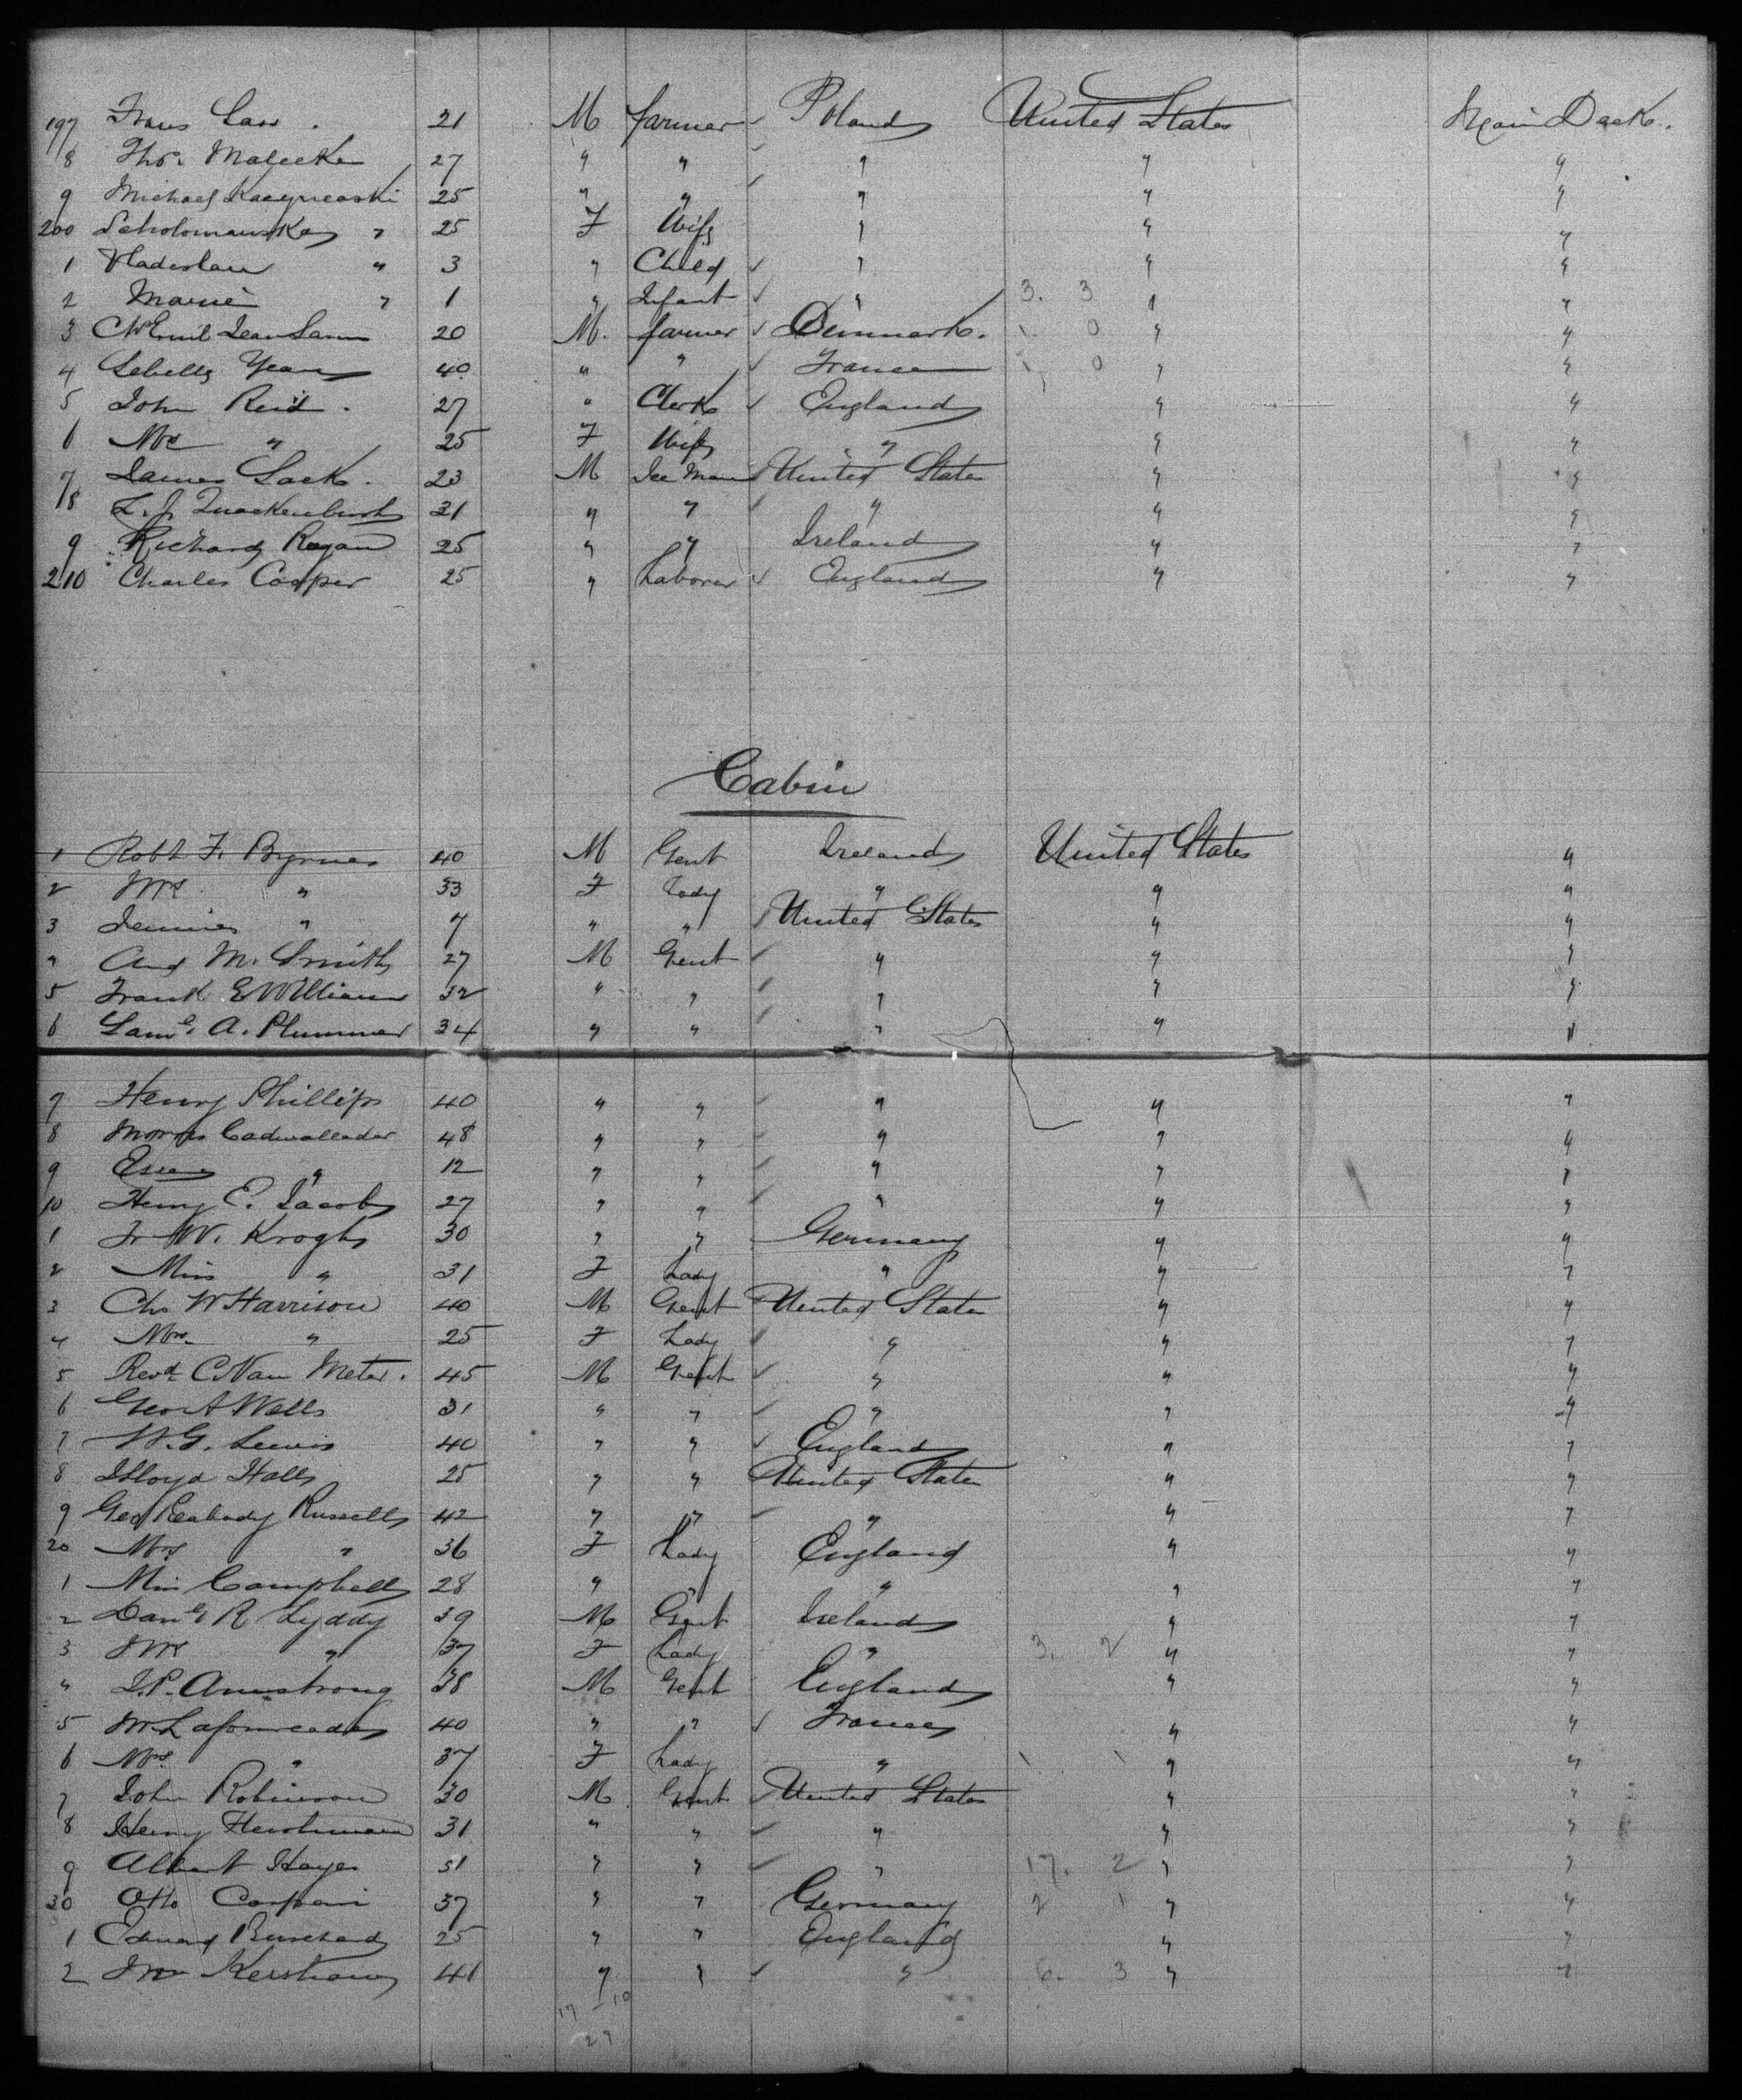 197 Frans Lass. 21 M farmer Poland United States Main Deck.
8 Thos. 27 " " " " "
9 Michael 25 " " " " "
200 " 25 F Wife " " "
1 Vladislaw " 3 " Child " " "
2 Marie " 1 " Infant " 3. 3 " "
3 20 M. farmer Denmark. 1. 0 " "
4 Yean 40 " " France 1, 0 " "
5 John Reid. 27 " Clerk England " "
6 Mrs " 25 F Wife " " "
7 James Lack. 23 M Ice Man United States " "
8 L. J. Quackenbush 31 " " " " "
9 Richard Rogan 25 " " Ireland " "
210 Charles Cooper 25 " Laborer England " "
Cabin
1 Robt F. Byrnes 40 M Gent Ireland United States "
2 Mrs " 33 F Lady " " "
3 Jennie " 7 " " United States " "
" And M. Smith 27 M Gent " " "
5 Frank E William 32 " " " " "
6 Saml. A. Plummer 34 " " " " "
7 Henry Phillips 40 " " " " "
8 Morris Cadwallader 48 " " " " "
9 " 12 " " " " "
10 Henry E. Jacobs 27 " " " " "
1 Fr W. Krogh 30 " " Germany " "
2 Miss " 31 F Lady " " "
3 Chs W Harrison 40 M Gent United States " "
4 Mrs. " 25 F Lady " " "
5 Revd. C. Van Meter. 45 M Gent " " "
6 Geo A Wells 31 " " " " "
7 W. G. Lewis 40 " " England " "
8 Lloyd Halls 25 " " United States " "
9 Geo Peabody Russell 42 " " " " "
20 Mrs " 36 F Lady England " "
1 Miss Campbell 28 " " " " "
2 Danl R Lyddy 39 M Gent Ireland " "
3 Mrs " 37 F Lady " 3. 2 " "
4 J. P. Armstrong 38 M Gent England " "
5 40 " " France " "
6 Mrs. " 37 F Lady " 1 1 " "
7 John Robinson 30 M Gent United States " "
8 Henry Hershman 31 " " " " "
9 Albert Hayes 51 " " " 17. 2 " "
30 Otto 37 " " Germany 2 1 " "
1 Edward Burchard 25 " " England " "
2 Jno Kershaw 41 " " " 6. 3 " "
17 - 10
27